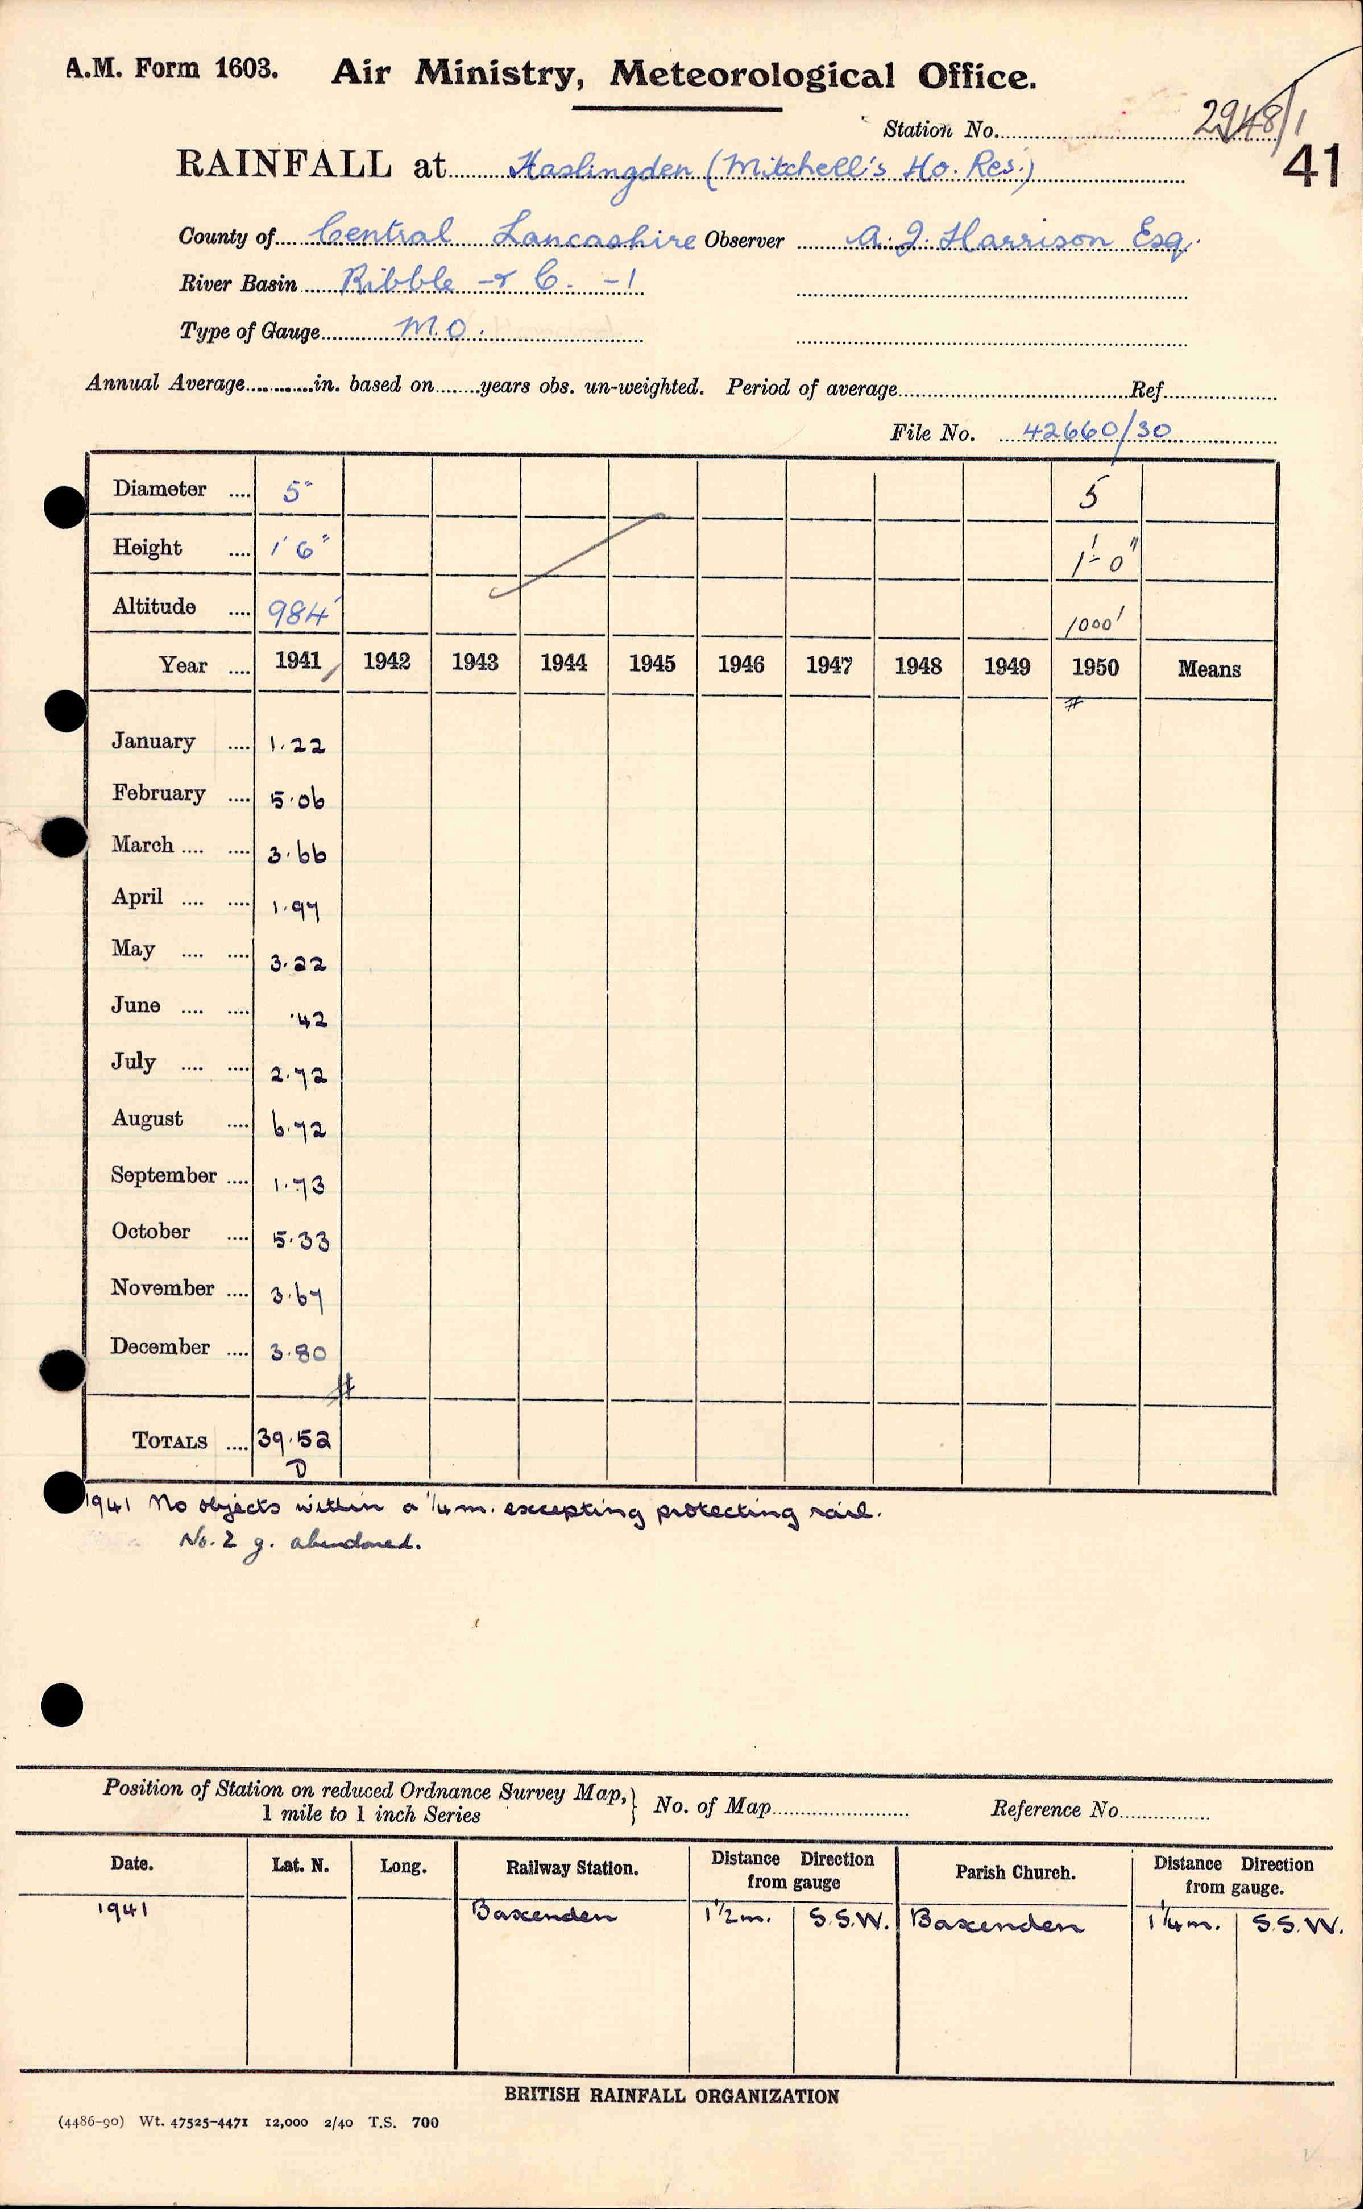 A.M. Form 1603. Air Ministry, Meteorological Office.
Station No. 2948/1
41
RAINFALL at Haslingden (Mitchell's Ho. Res.)
County of Central Lancashire Observer A. J. Harrison Esq.
River Basin Ribble & C. -1
Type of Gauge M.O.
Annual Average in. based on years obs. un-weighted. Period of average Ref.
File No. 42660/30
Diameter .... 5" 5
Height .... 1' 6" 1'-0"
Altitude .... 984' 1000'
Year .... 1941 1942 1943 1944 1945 1946 1947 1948 1949 1950 Means
#
January .... 1.22
February .... 5.06
March .... .... 3.66
April .... .... 1.97
May .... .... 3.22
June .... .... .42
July .... .... 2.72
August .... 6.72
September .... 1.73
October .... 5.33
November .... 3.67
December .... 3.80
#
TOTALS .... 39.52
D
1941 No objects within a 1/4 m. excepting protecting rail.
No. 2 g. abandoned.
Position of Station on reduced Ordnance Survey Map, } No. of Map Reference No.
1 mile to 1 inch Series
Date. Lat. N. Long. Railway Station. Distance Direction from gauge Parish Church. Distance Direction from gauge.
1941 Baxenden 1 1/2 m. S.S.W. Baxenden 1 1/4 m. S.S.W.
BRITISH RAINFALL ORGANIZATION
(4486-90) Wt. 47525-4471 12,000 2/40 T.S. 700